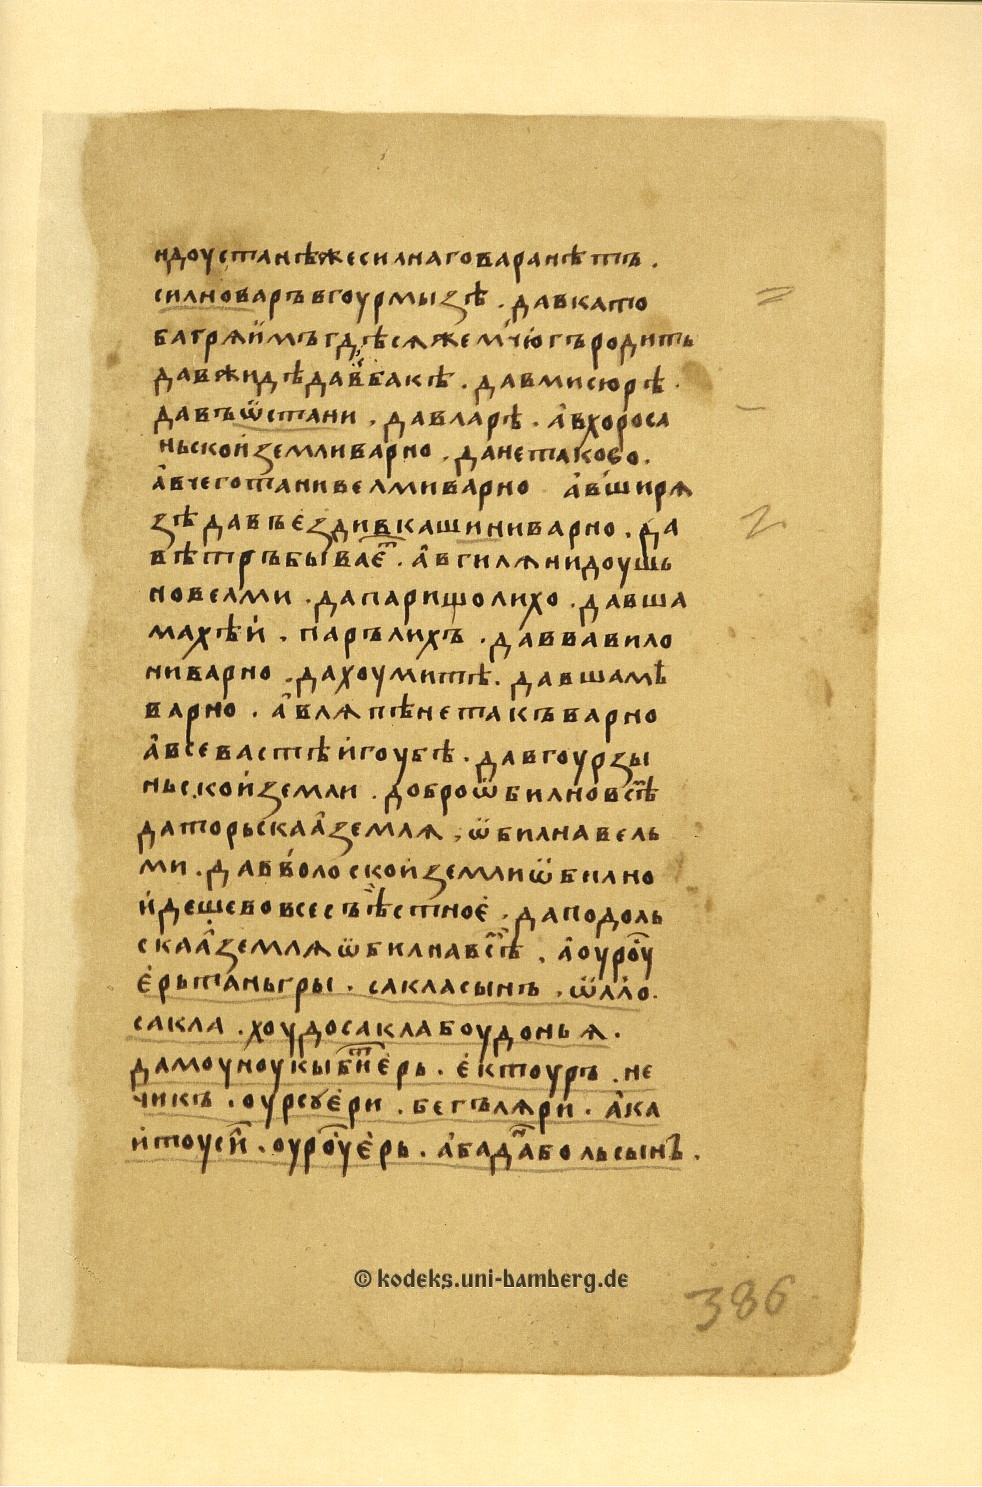 ндоустанѣжесилнаговаранѣтъ.
силноваръвгоурмызѣ.давкато
багряимъгдѣсяжемчюгъродить
давжидѣдавбакѣ.давмисюрѣ.
давъѿстани.давларѣ.авхороса
ньскойземливарно.данетаково.
авчеготанивелмиварно авширя
зѣдавъездивкашиниварно.да
вѣтръбывает.авгиляниdоушь
новелми.дапаришолихо.давша
махѣй.парълихъ.даввавило
ниварно.дахоумитѣ.давшамѣ
варно.авляпѣнетакъварно
авсевастѣйгоубѣ.давгоурзы
ньскойземли.доброѡбилновсѣ
даторьскааземля,ѡбилнавель
ми.давволоскойземлиѡбилно
йдешевовсесъѣстное.даподоль
скааземляѡбилнавсѣ.аоуроу
ерьтаньгры.сакласынъ.ѡлло.
сакла.хоудосаклабоудонья.
дамоуноукыбнтерь.ектоуръ.не
чикъ.оурсꙋери.бегъляри.ака
йтоусн.оуроуерь.абаданабольсынъ.
© kodeks.uni-bamberg.de
386